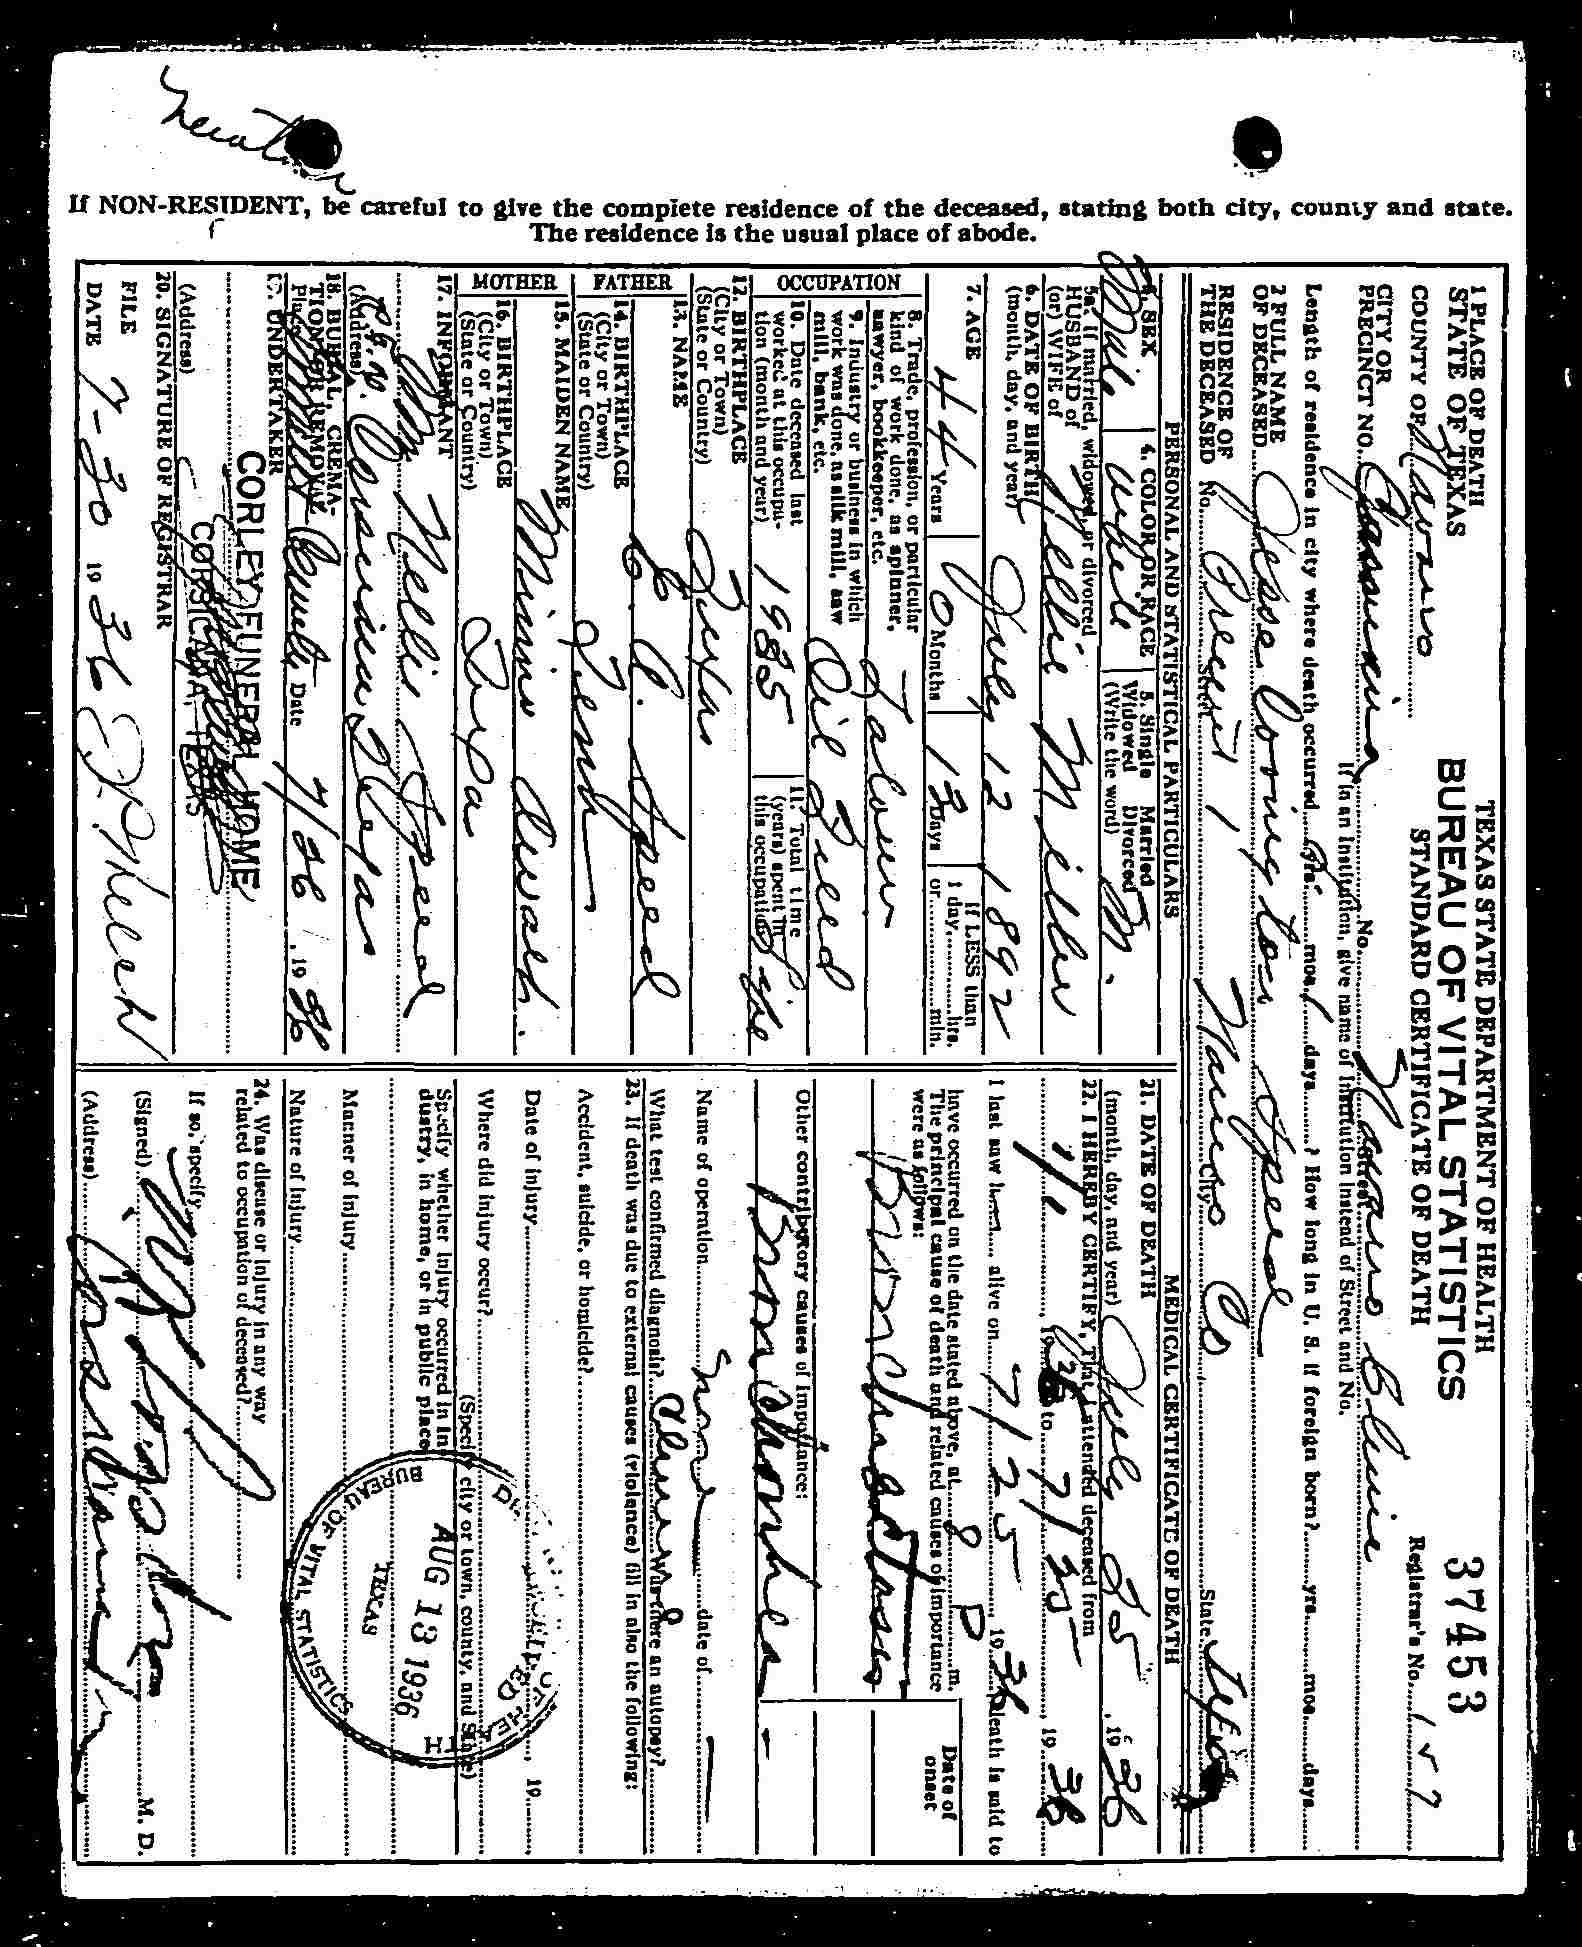 If NON-RESIDENT, be careful to give the complete residence of the deceased, stating both city, county and state.
The residence is the usual place of abode.
TEXAS STATE DEPARTMENT OF HEALTH
BUREAU OF VITAL STATISTICS
STANDARD CERTIFICATE OF DEATH
37453
Registrar's No. 157
1 PLACE OF DEATH
STATE OF TEXAS
COUNTY OF Navarro
CITY OR
PRECINCT NO. Corsicana No. Navarro Clinic
Street
If in an institution, give name of institution instead of Street and No.
Length of residence in city where death occurred yrs. mos. 1 days ? How long in U. S. if foreign born? yrs. mos. days
2 FULL NAME
OF DECEASED Jesse Covington Speed
RESIDENCE OF
THE DECEASED No. Precinct 1 Street Navarro Co City State Texas
PERSONAL AND STATISTICAL PARTICULARS
3. SEX Male
4. COLOR OR RACE White
5. Single Married
Widowed Divorced
(Write the word) M.
5a. If married, widowed, or divorced
HUSBAND of
(or) WIFE of Nellie Miller
6. DATE OF BIRTH
(month, day, and year) July 12 1892
7. AGE 44 Years 0 Months 13 Days
If LESS than
1 day, hrs.
or min.
OCCUPATION
8. Trade, profession, or particular
kind of work done, as spinner,
sawyer, bookkeeper, etc. Labor
9. Industry or business in which
work was done, as silk mill, saw
mill, bank, etc. Oil Field
10. Date deceased last
worked at this occupa-
tion (month and year) 1935
11. Total time
(years) spent in
this occupation Life
12. BIRTHPLACE
(City or Town)
(State or Country) Texas
FATHER
13. NAME A. Speed
14. BIRTHPLACE
(City or Town)
(State or Country) Tenn
MOTHER
15. MAIDEN NAME Minnie
16. BIRTHPLACE
(City or Town)
(State or Country) Texas
17. INFORMANT Mrs Nellie Speed
(Address) Corsicana Texas
18. BURIAL, CREMA-
TION OR REMOVAL
Place Date 7/26, 1936
19. UNDERTAKER
CORLEY FUNERAL HOME
(Address) CORSICANA, TEXAS
20. SIGNATURE OF REGISTRAR
FILE
DATE 7-30 1936
MEDICAL CERTIFICATE OF DEATH
21. DATE OF DEATH
(month, day, and year) July 25, 1936
22. I HEREBY CERTIFY, That I attended deceased from
, 19 to 7/25 19 36
I last saw h alive on 7/25, 1936, death is said to
have occurred on the date stated above, at 8 P m.
The principal cause of death and related causes of importance
were as follows:
Date of
onset
Bronchiectasis
Other contributory causes of importance:
Name of operation None date of
What test confirmed diagnosis? Clinical Was there an autopsy?
23. If death was due to external causes (violence) fill in also the following:
Accident, suicide, or homicide?
Date of injury , 19
Where did injury occur?
(Specify city or town, county, and State)
Specify whether injury occurred in in-
dustry, in home, or in public place
Manner of injury
Nature of injury
24. Was disease or injury in any way
related to occupation of deceased?
If so, specify
(Signed) M. D.
(Address) Corsicana
BUREAU OF VITAL STATISTICS
AUG 13 1936
TEXAS